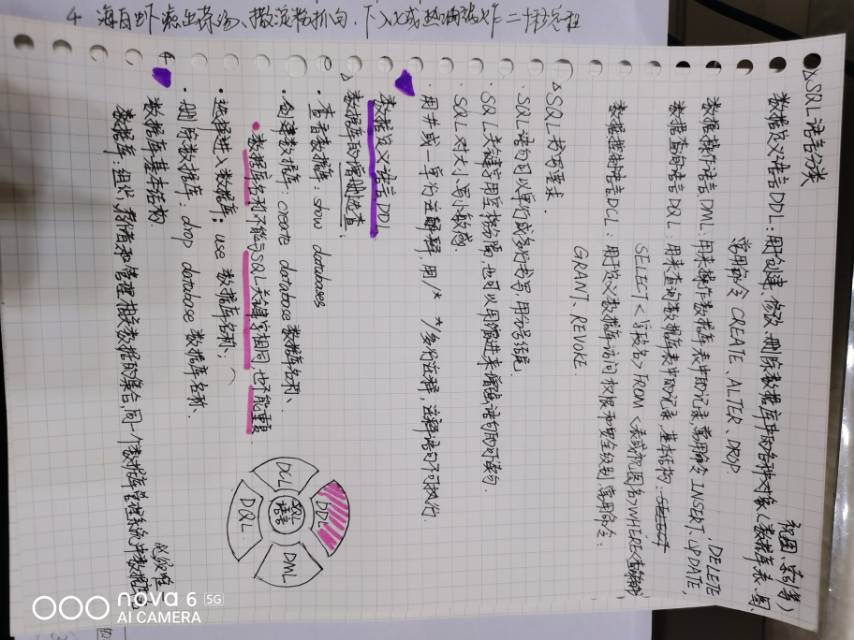 △SQL语言分类
数据定义语言DDL：用于创建、修改、删除数据库中的各种对象（数据库、表、
视图、索引等）
常用命令 CREATE、ALTER、DROP
数据操作语言DML：用来操作数据库表中的记录，常用命令INSERT、UPDATE、
DELETE
数据查询语言DQL：用来查询数据库表中的记录，基本结构：
SELECT<字段名>FROM<表或视图名>WHERE<查询条件>
数据控制语言DCL：用于定义数据库访问权限和安全级别，常用命令：
GRANT、REVOKE
△SQL书写要求
·SQL语句可以单行或多行书写，用分号结尾
·SQL关键字用空格分隔，也可以用缩进来增强语句的可读性
·SQL对大小写不敏感
·用#或--单行注解释，用/* */多行注释，注释语句不可执行.
数据定义语言DDL
数据库的增删改查：
查看数据库：show databases
·创建数据库：create database 数据库名称；
·数据库名称不能与SQL关键字相同，也不能重复
·选择进入数据库：use 数据库名称；
·删除数据库：drop database 数据库名称.
4
数据库基本结构
数据库：组织，存储和管理相关数据的集合，同一个数据库管理系统中数据库
SQL
语言
DDL
DML
DQL
DCL
nova 6 5G
AI CAMERA